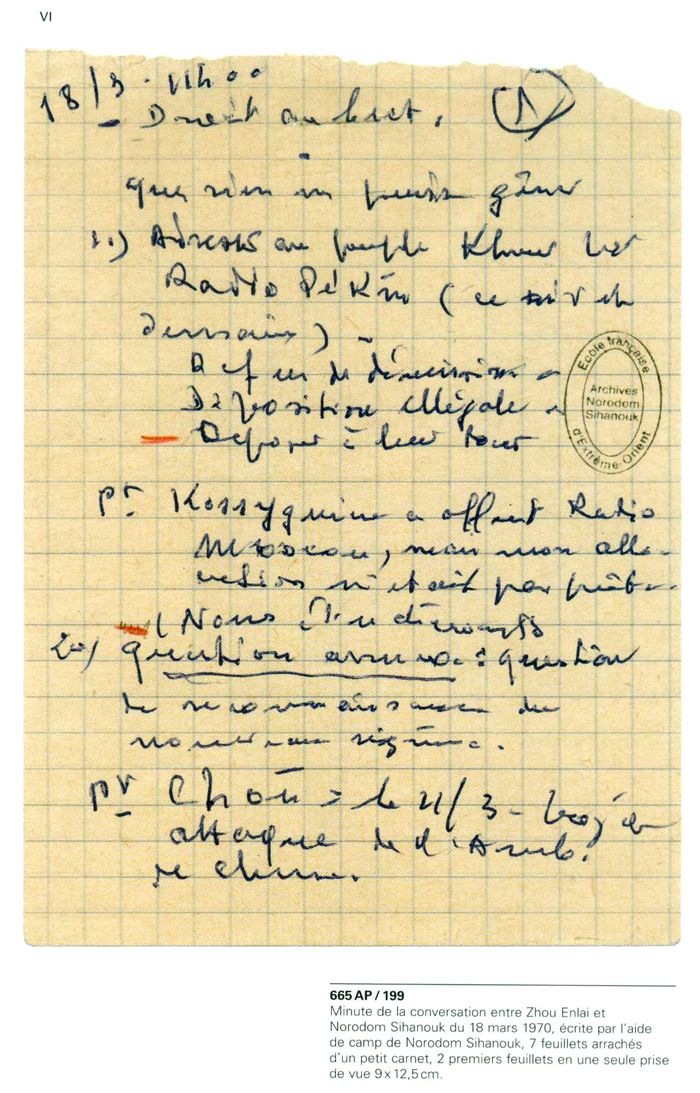 VI
18/3 - 11h00
- Droit au but.
1
que rien ne puisse gêner
1o) Adresse au peuple Khmer par
Radio Pékin (ce soir ou
demain) -
Refus de démission -
Déposition illégale -
Déposer à leur tour
Pr Kossyguine a offert Radio
Moscou, mais mon allo-
cution n'était pas prête.
(Nous
2o) Question annexe : question
de reconnaissance du
nouveau régime.
Pr Chou = le 11/3 -
attaque de l'Amb.
de Chine.
Ecole française
d'Extrême-Orient
Archives
Norodom
Sihanouk
665 AP / 199
Minute de la conversation entre Zhou Enlai et
Norodom Sihanouk du 18 mars 1970, écrite par l'aide
de camp de Norodom Sihanouk, 7 feuillets arrachés
d'un petit carnet, 2 premiers feuillets en une seule prise
de vue 9 x 12,5 cm.